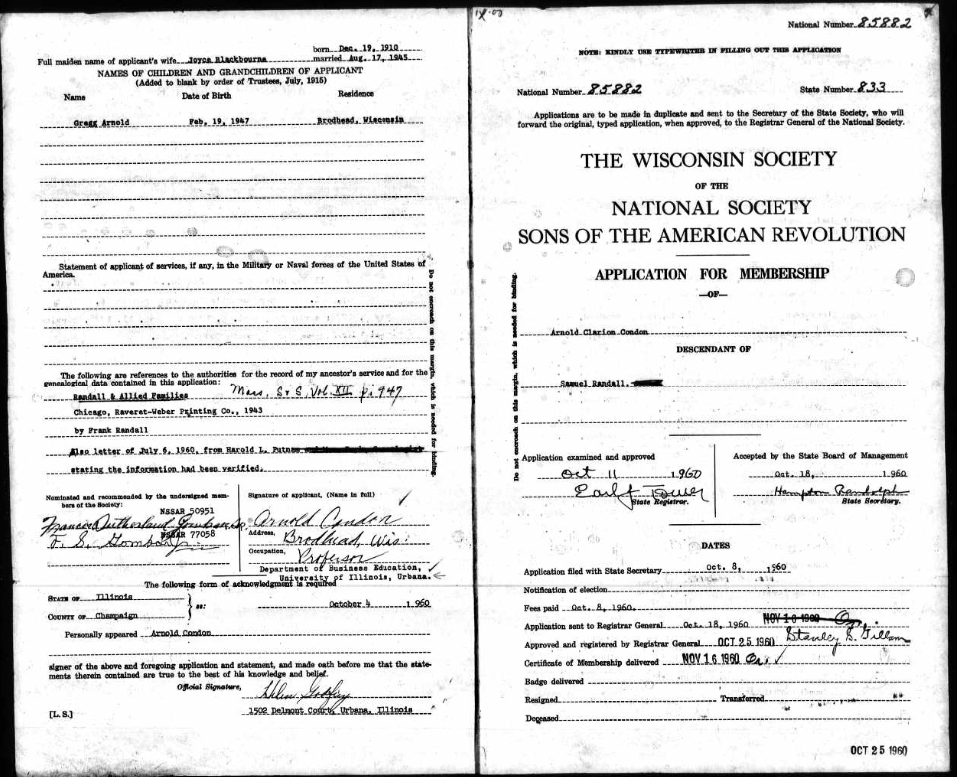 born Dec. 19, 1910
Full maiden name of applicant's wife Joyce Blackbourne married Aug. 17, 1945
NAMES OF CHILDREN AND GRANDCHILDREN OF APPLICANT
(Added to blank by order of Trustees, July, 1915)
Name Date of Birth Residence
Gregg Arnold Feb. 19, 1947 Brodhead, Wisconsin
Statement of applicant of services, if any, in the Military or Naval forces of the United States of
America.
The following are references to the authorities for the record of my ancestor's service and for the
genealogical data contained in this application:
Mass. S & S Vol. XII p. 947
Randall & Allied Families
Chicago, Raveret-Weber Printing Co., 1943
by Frank Randall
Also letter of July 6, 1960, from Harold L. Putnam
stating the information had been verified.
Do not encroach on this margin, which is needed for binding.
Nominated and recommended by the undersigned mem-
bers of the Society:
NSSAR 50951
NSSAR 77058
Signature of applicant, (Name in full)
Arnold Condon
Address, Brodhead, Wis.
Occupation, Professor
Department of Business Education,
University of Illinois, Urbana.
The following form of acknowledgment is required
STATE OF Illinois
COUNTY OF Champaign
ss: October 4 1960
Personally appeared Arnold Condon
signer of the above and foregoing application and statement, and made oath before me that the state-
ments therein contained are true to the best of his knowledge and belief.
Official Signature, Helen Godfrey
[L. S.] 1502 Delmont Court, Urbana, Illinois
National Number 85882
NOTE: KINDLY USE TYPEWRITER IN FILLING OUT THIS APPLICATION
National Number 85882 State Number 833
Applications are to be made in duplicate and sent to the Secretary of the State Society, who will
forward the original, typed application, when approved, to the Registrar General of the National Society.
THE WISCONSIN SOCIETY
OF THE
NATIONAL SOCIETY
SONS OF THE AMERICAN REVOLUTION
APPLICATION FOR MEMBERSHIP
—OF—
Arnold Clarion Condon
DESCENDANT OF
Samuel Randall.
Do not encroach on this margin, which is needed for binding.
Application examined and approved
Oct 11 1960
State Registrar.
Accepted by the State Board of Management
Oct. 18, 1960
Hampton Randolph
State Secretary.
DATES
Application filed with State Secretary Oct. 8, 1960
Notification of election
Fees paid Oct. 8, 1960.
Application sent to Registrar General Oct. 18, 1960 NOV 1 6 1960
Approved and registered by Registrar General OCT 25 1960 Stanley S. Gillam
Certificate of Membership delivered NOV 16 1960
Badge delivered
Resigned Transferred
Deceased
OCT 25 1960